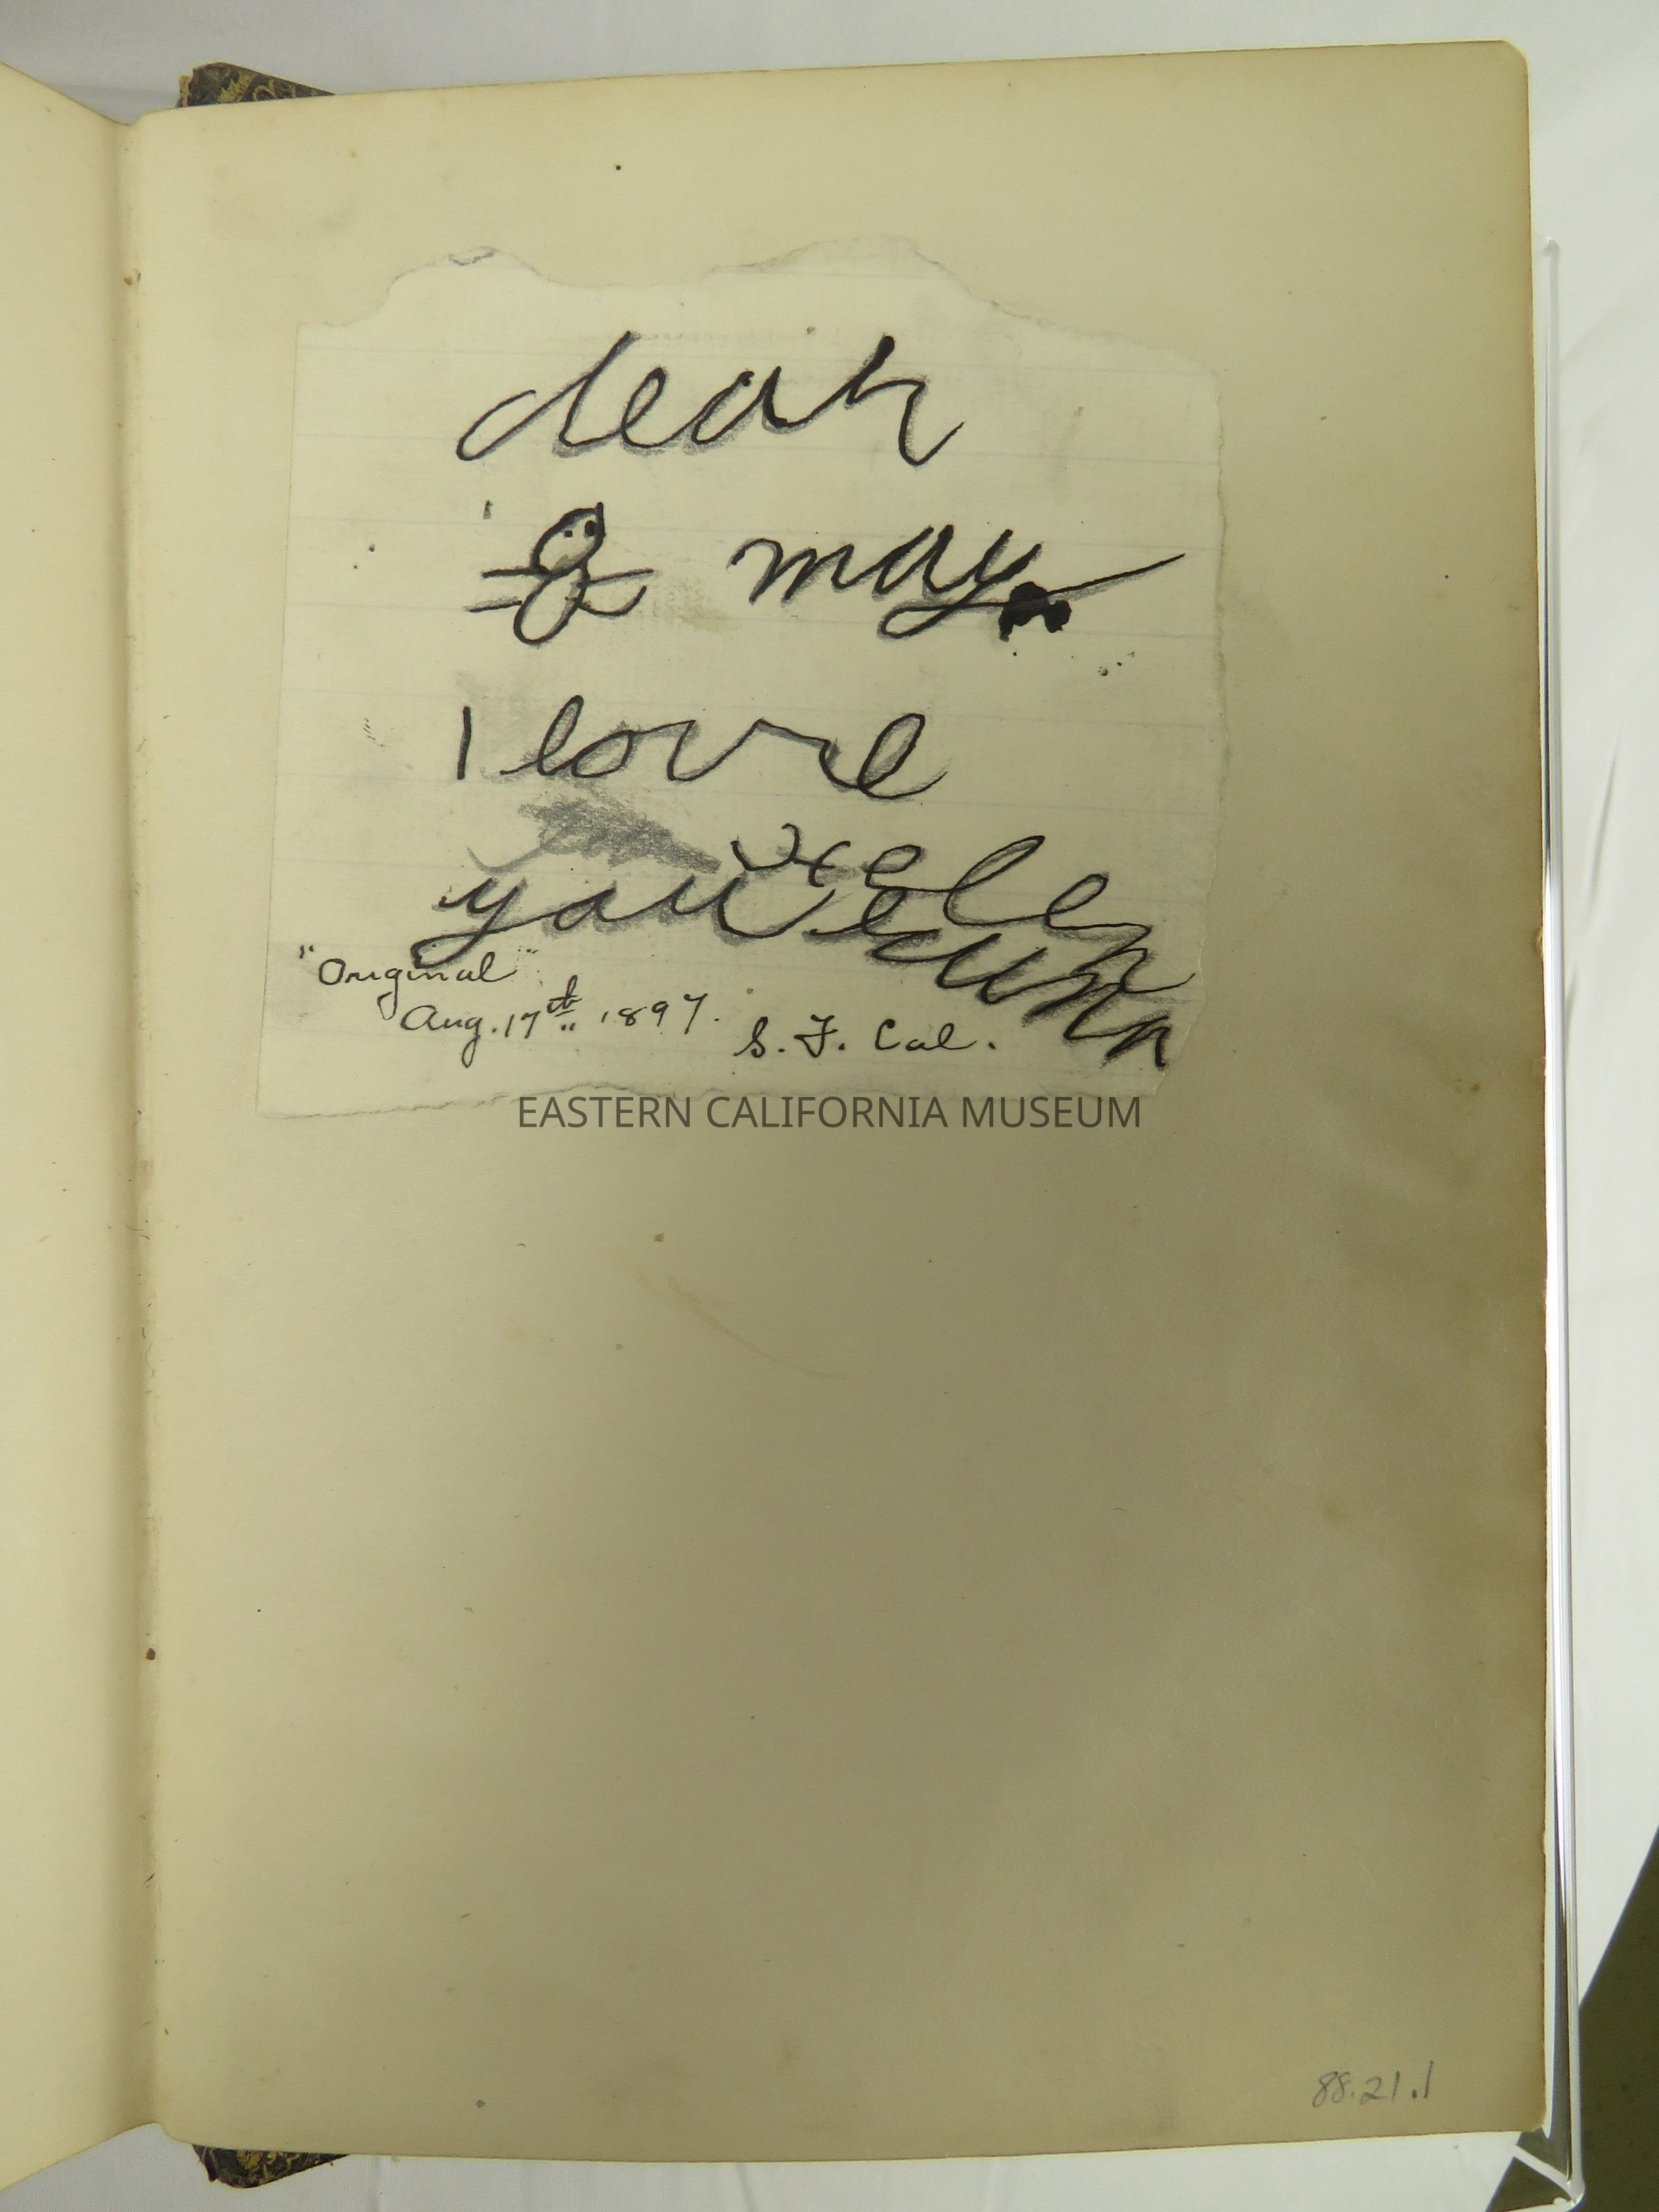 dear
may
I love
you Helen
Dunn
"Original"
Aug. 17th 1897.
S. F. Cal.
EASTERN CALIFORNIA MUSEUM
88.21.1